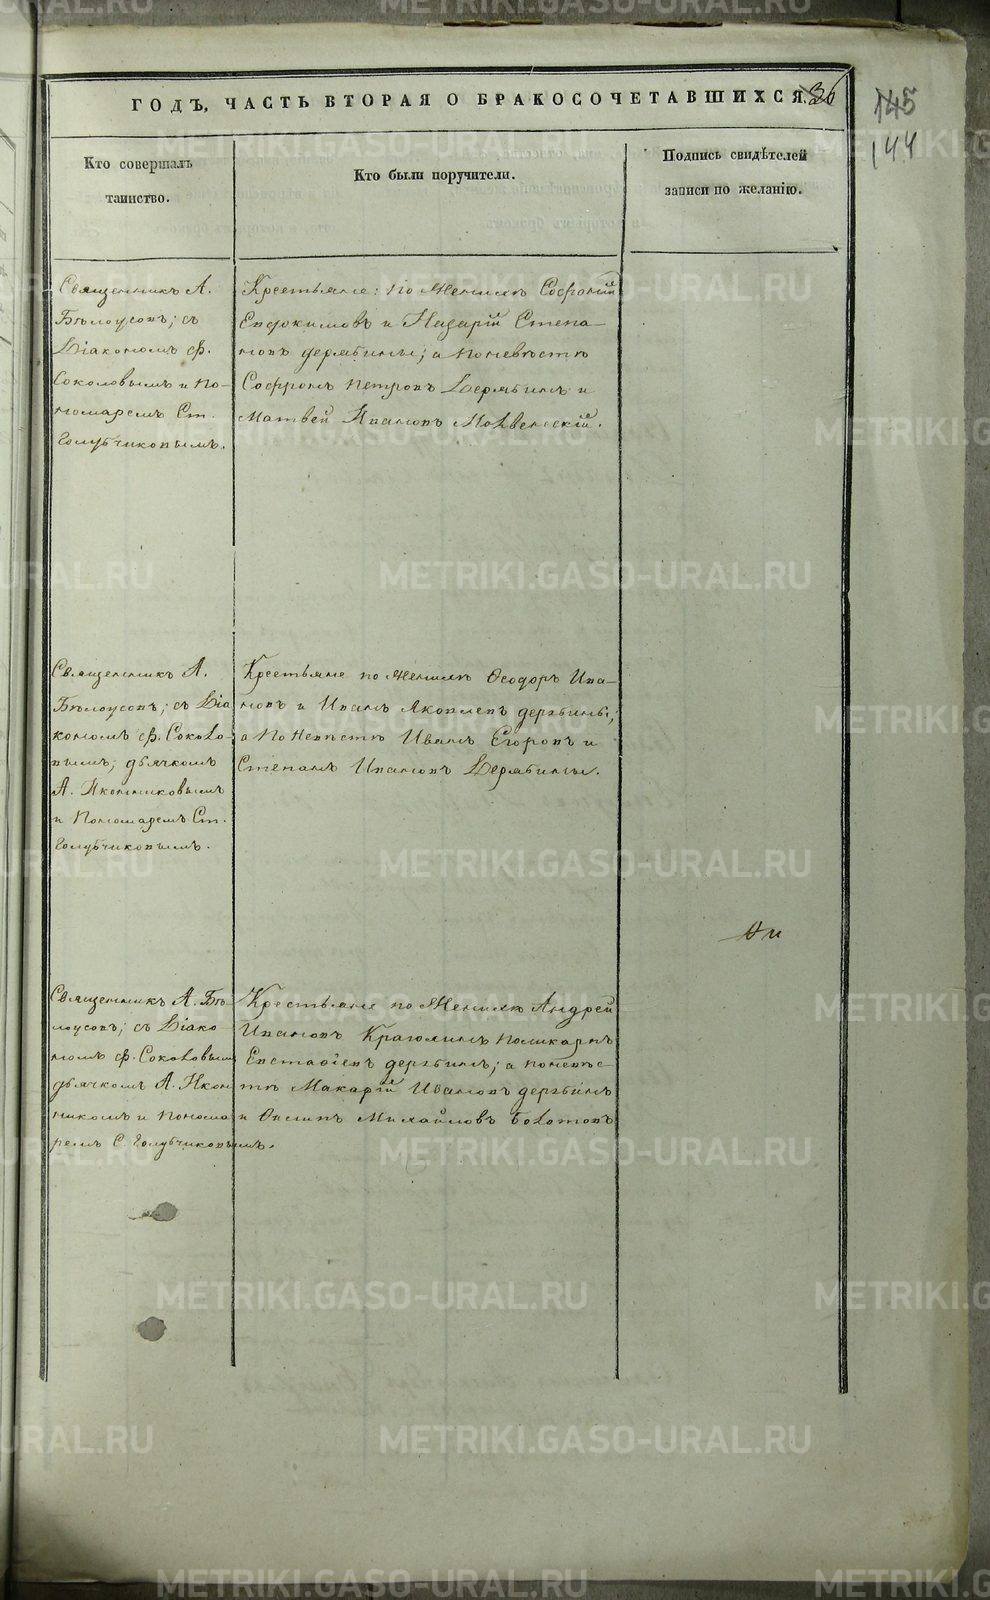 ГОДЪ, ЧАСТЬ ВТОРАЯ О БРАКОСОЧЕТАВШИХСЯ.
145
144
Кто совершалъ
таинство.
Кто были поручители.
Подпись свидѣтелей
записи по желанію.
Священникъ А.
Бѣлоусовъ; съ
Діакономъ Ф.
Соколовымъ и по-
номаремъ Ст.
Голубчиковымъ.
Крестьяне: по Женихѣ Софроній
Евдокимовъ и Назарій Степа-
новъ дерябины; а поневѣстѣ
Софронъ Петровъ Дерябинъ и
Матвей Ивановъ
Священникъ А.
Бѣлоусовъ; съ Діа
кономъ Ф. Соколо-
вымъ; дьячкомъ
А. Иконниковымъ
и Пономаремъ Ст.
Голубчиковымъ.
Крестьяне по Женихѣ Ѳеодоръ Ива-
новъ и Иванъ Яковлевъ дерябины;
а по Невѣстѣ Иванъ Егоровъ и
Степанъ Ивановъ Дерябины.
Священникъ А. Бѣ-
лоусовъ; съ Діако-
номъ Ф. Соколовымъ
дьячкомъ А. Икон
никомъ и Понома
ремъ С. Голубчиковымъ.
Крестьяне по Женихѣ Андрей
Ивановъ Поликарпъ
Евстафіевъ дерябинъ; а поневѣс-
тѣ Макарій Ивановъ дерябинъ
и Михайловъ Болотовъ
METRIKI.GASO-URAL.RU